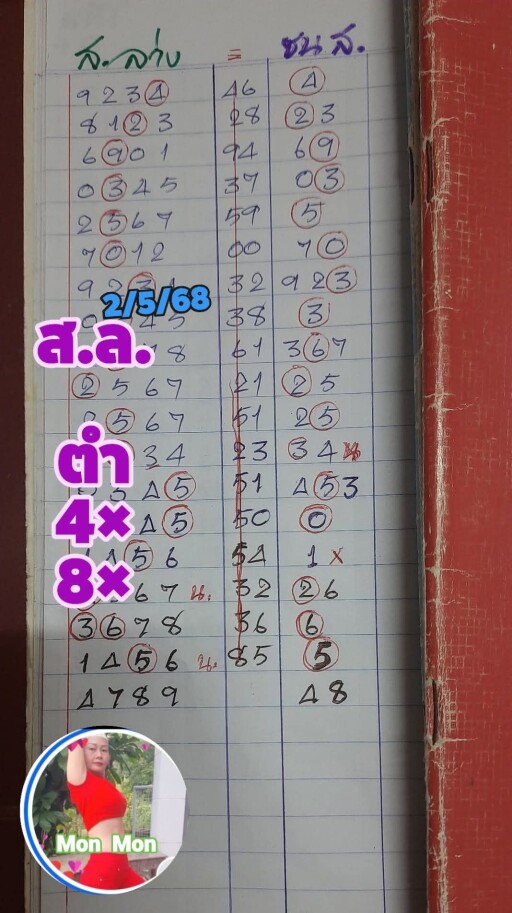 ส.ล่าง = ชน ส.
9 2 3 4 46 4
8 1 2 3 28 2 3
6 9 0 1 94 6 9
0 3 4 5 37 0 3
2 5 6 7 59 5
7 0 1 2 00 7 0
9 2 3 32 9 2 3
2/5/68
0 4 5 38 3
ส.ล.
8 61 3 6 7
2 5 6 7 21 2 5
5 6 7 51 2 5
ตำ
3 4 23 3 4 น
5 4 5 51 4 5 3
4×
4 5 50 0
5 6 54 1 ×
8×
6 7 น. 32 2 6
3 6 7 8 36 6
1 4 5 6 น. 85 5
4 7 8 9 4 8
Mon Mon